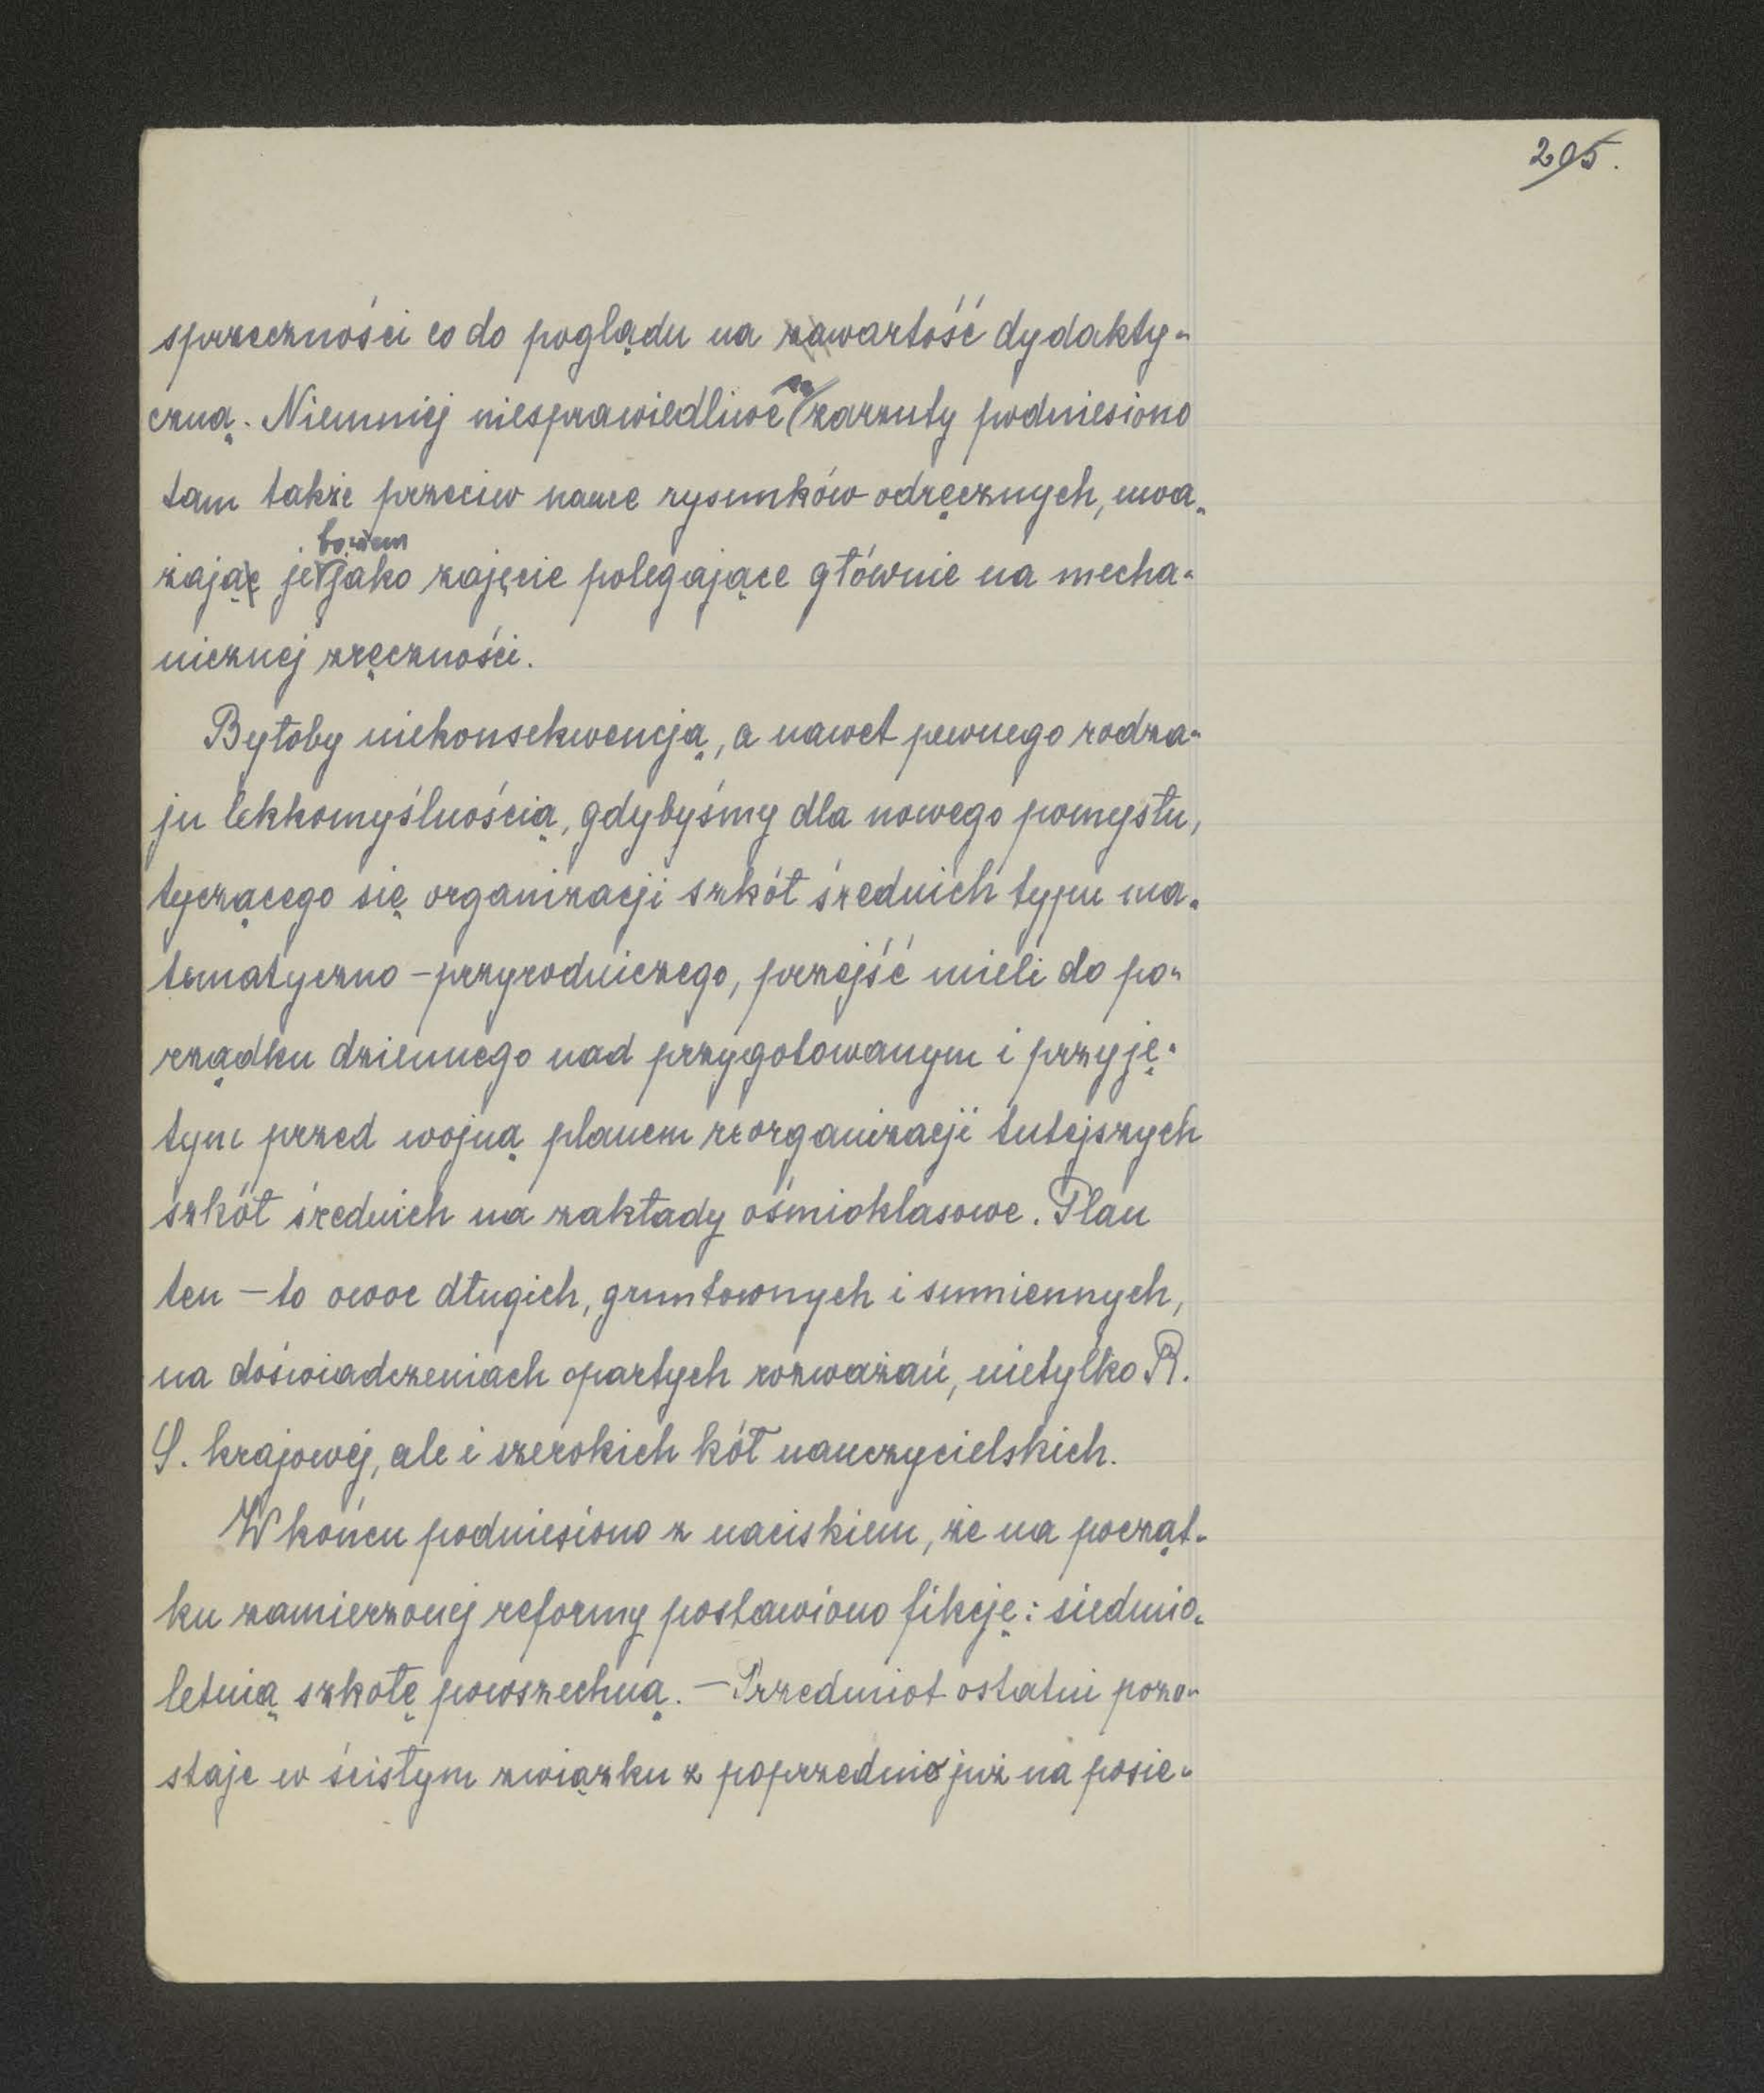 205.
sprzeczności co do poglądu na wartość dydakty-
czną. Niemniej niesprawiedliwe są zarzuty podniesiono
tam także przeciw nauce rysunków odręcznych, uwa-
bowiem
żają je jako zajęcie polegające głównie na mecha-
nicznej zręczności.
Byłoby niekonsekwencją, a nawet pewnego rodza-
ju lekkomyślnością, gdybyśmy dla nowego pomysłu,
tyczącego się organizacji szkół średnich typu ma-
tematyczno-przyrodniczego, przejść mieli do po-
rządku dziennego nad przygotowanym i przyję-
tym przed wojną planem reorganizacji tutejszych
szkół średnich na zakłady ośmioklasowe. Plan
ten – to owoc długich, gruntownych i sumiennych,
na doświadczeniach opartych rozważań, nietylko R.
S. krajowej, ale i szerokich kół nauczycielskich.
W końcu podniesiono z naciskiem, że na począt-
ku zamierzonej reformy postawiono fikcję: siedmio-
letnią szkołę powszechną. – Przedmiot ostatni pozo-
staje w ścisłym związku z poprzednio już na posie-